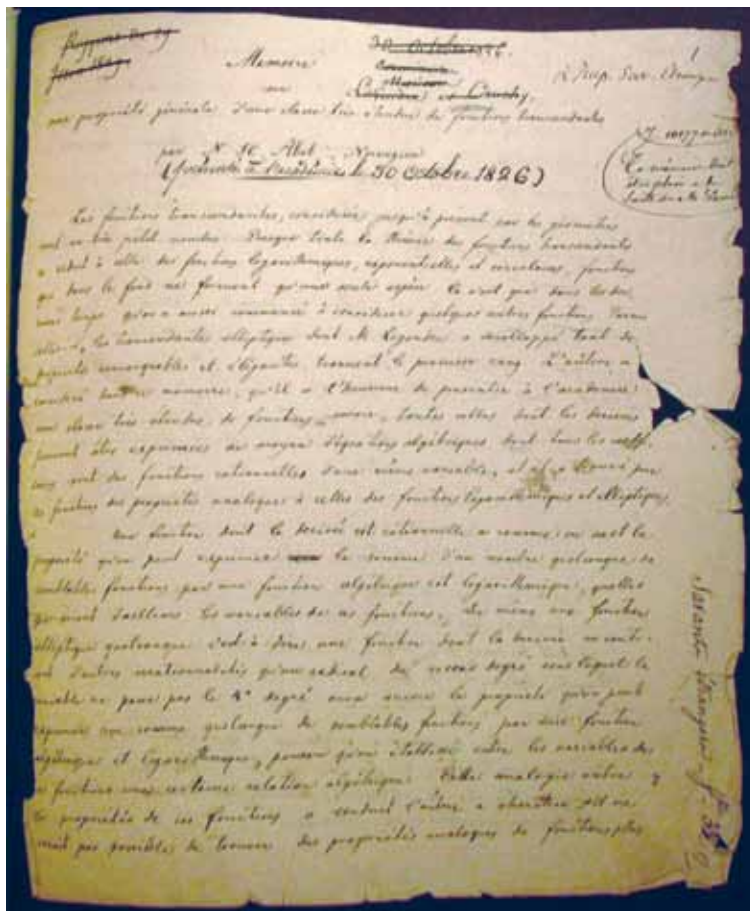 Rapport du 29
Juin 1829
30 Octobre 1826.
Commissaires
Messieurs
Legendre et Cauchy,
1
Memoire
sur
une propriété générale d'une classe très étendue de fonctions transcendantes
par N. H. Abel Norvegien
(présenté à l'académie le 30 octobre 1826)
Les fonctions transcendantes considérées jusqu'à présent par les géomètres
sont en très petit nombre. Presque toute la théorie des fonctions transcendantes
se réduit à celle des fonctions logarithmiques, exponentielles et circulaires, fonctions
qui dans le fond ne forment qu'une seule espèce. Ce n'est que dans les der-
niers temps qu'on a aussi commencé à considérer quelques autres fonctions. Parmi
celles-ci, les transcendantes elliptiques dont M. Legendre a developpé tant de
propriétés remarquables et élégantes, tiennent le premier rang. L'auteur a
considéré dans le memoire, qu'il a l'honneur de presenter à l'academie
une classe très étendue de fonctions, savoir, toutes celles dont les derivées
peuvent être exprimées au moyen d'équations algébriques dont tous les coeffi-
ciens sont des fonctions rationnelles d'une même variable, et il a trouvé pour
ces fonctions des propriétés analogues à celles des fonctions logarithmiques et elliptiques.
Une fonction dont la derivée est rationnelle a comme on sait la
propriété qu'on peut exprimer la somme d'un nombre quelconque de
semblables fonctions par une fonction algébrique et logarithmique, quelles
que soient d'ailleurs les variables de ces fonctions. De même une fonction
elliptique quelconque c'est à dire une fonction dont la derivée ne conti-
ent d'autres irrationnalités qu'un radical du second degré sous lequel la
variable ne passe pas le 4e degré aura encore la propriété qu'on peut
exprimer une somme quelconque de semblables fonctions par une fonction
algébrique et logarithmique, pourvu qu'on établisse entre les variables de
ces fonctions une certaine relation algébrique. Cette analogie entre
les propriétés de ces fonctions a conduit l'auteur a chercher s'il ne
serait pas possible de trouver des propriétés analogues de fonctions plus
Savants étrangers